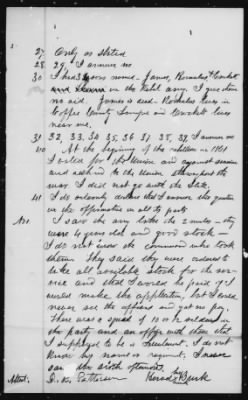 27 Only as stated
28. 29. I answer no
30 I had 3 sons none - James, Romulus & Crocket
and in the Rebel army. I gave them
no aid. James is dead - Romulus lives in
Coffee County Crocket lives
near me.
31 32. 33. 34. 35. 36. 37. 38. 39 I answer no
40. At the begining of the rebellion in 1861
I voted for the Union and against secession
and adhered to the Union throughout the
war I did not go with the State.
41. I do solemnly declare that I answer this question
in the affirmative in all its parts.
No 1. I saw the mules taken - they
were 4 years old and good stock -
I do not know the command who took
them. They said they were ordered to
take all available stock for the ser-
vice and that I would be paid if I
would make the application, but I could
never see the officers and get no pay.
There was a squad of 10 or 12 soldiers in
the party and an officer with them that
I supposed to be a Lieutenant. I do not
know his name or regiment. I never
saw the afterwards.
Attest.